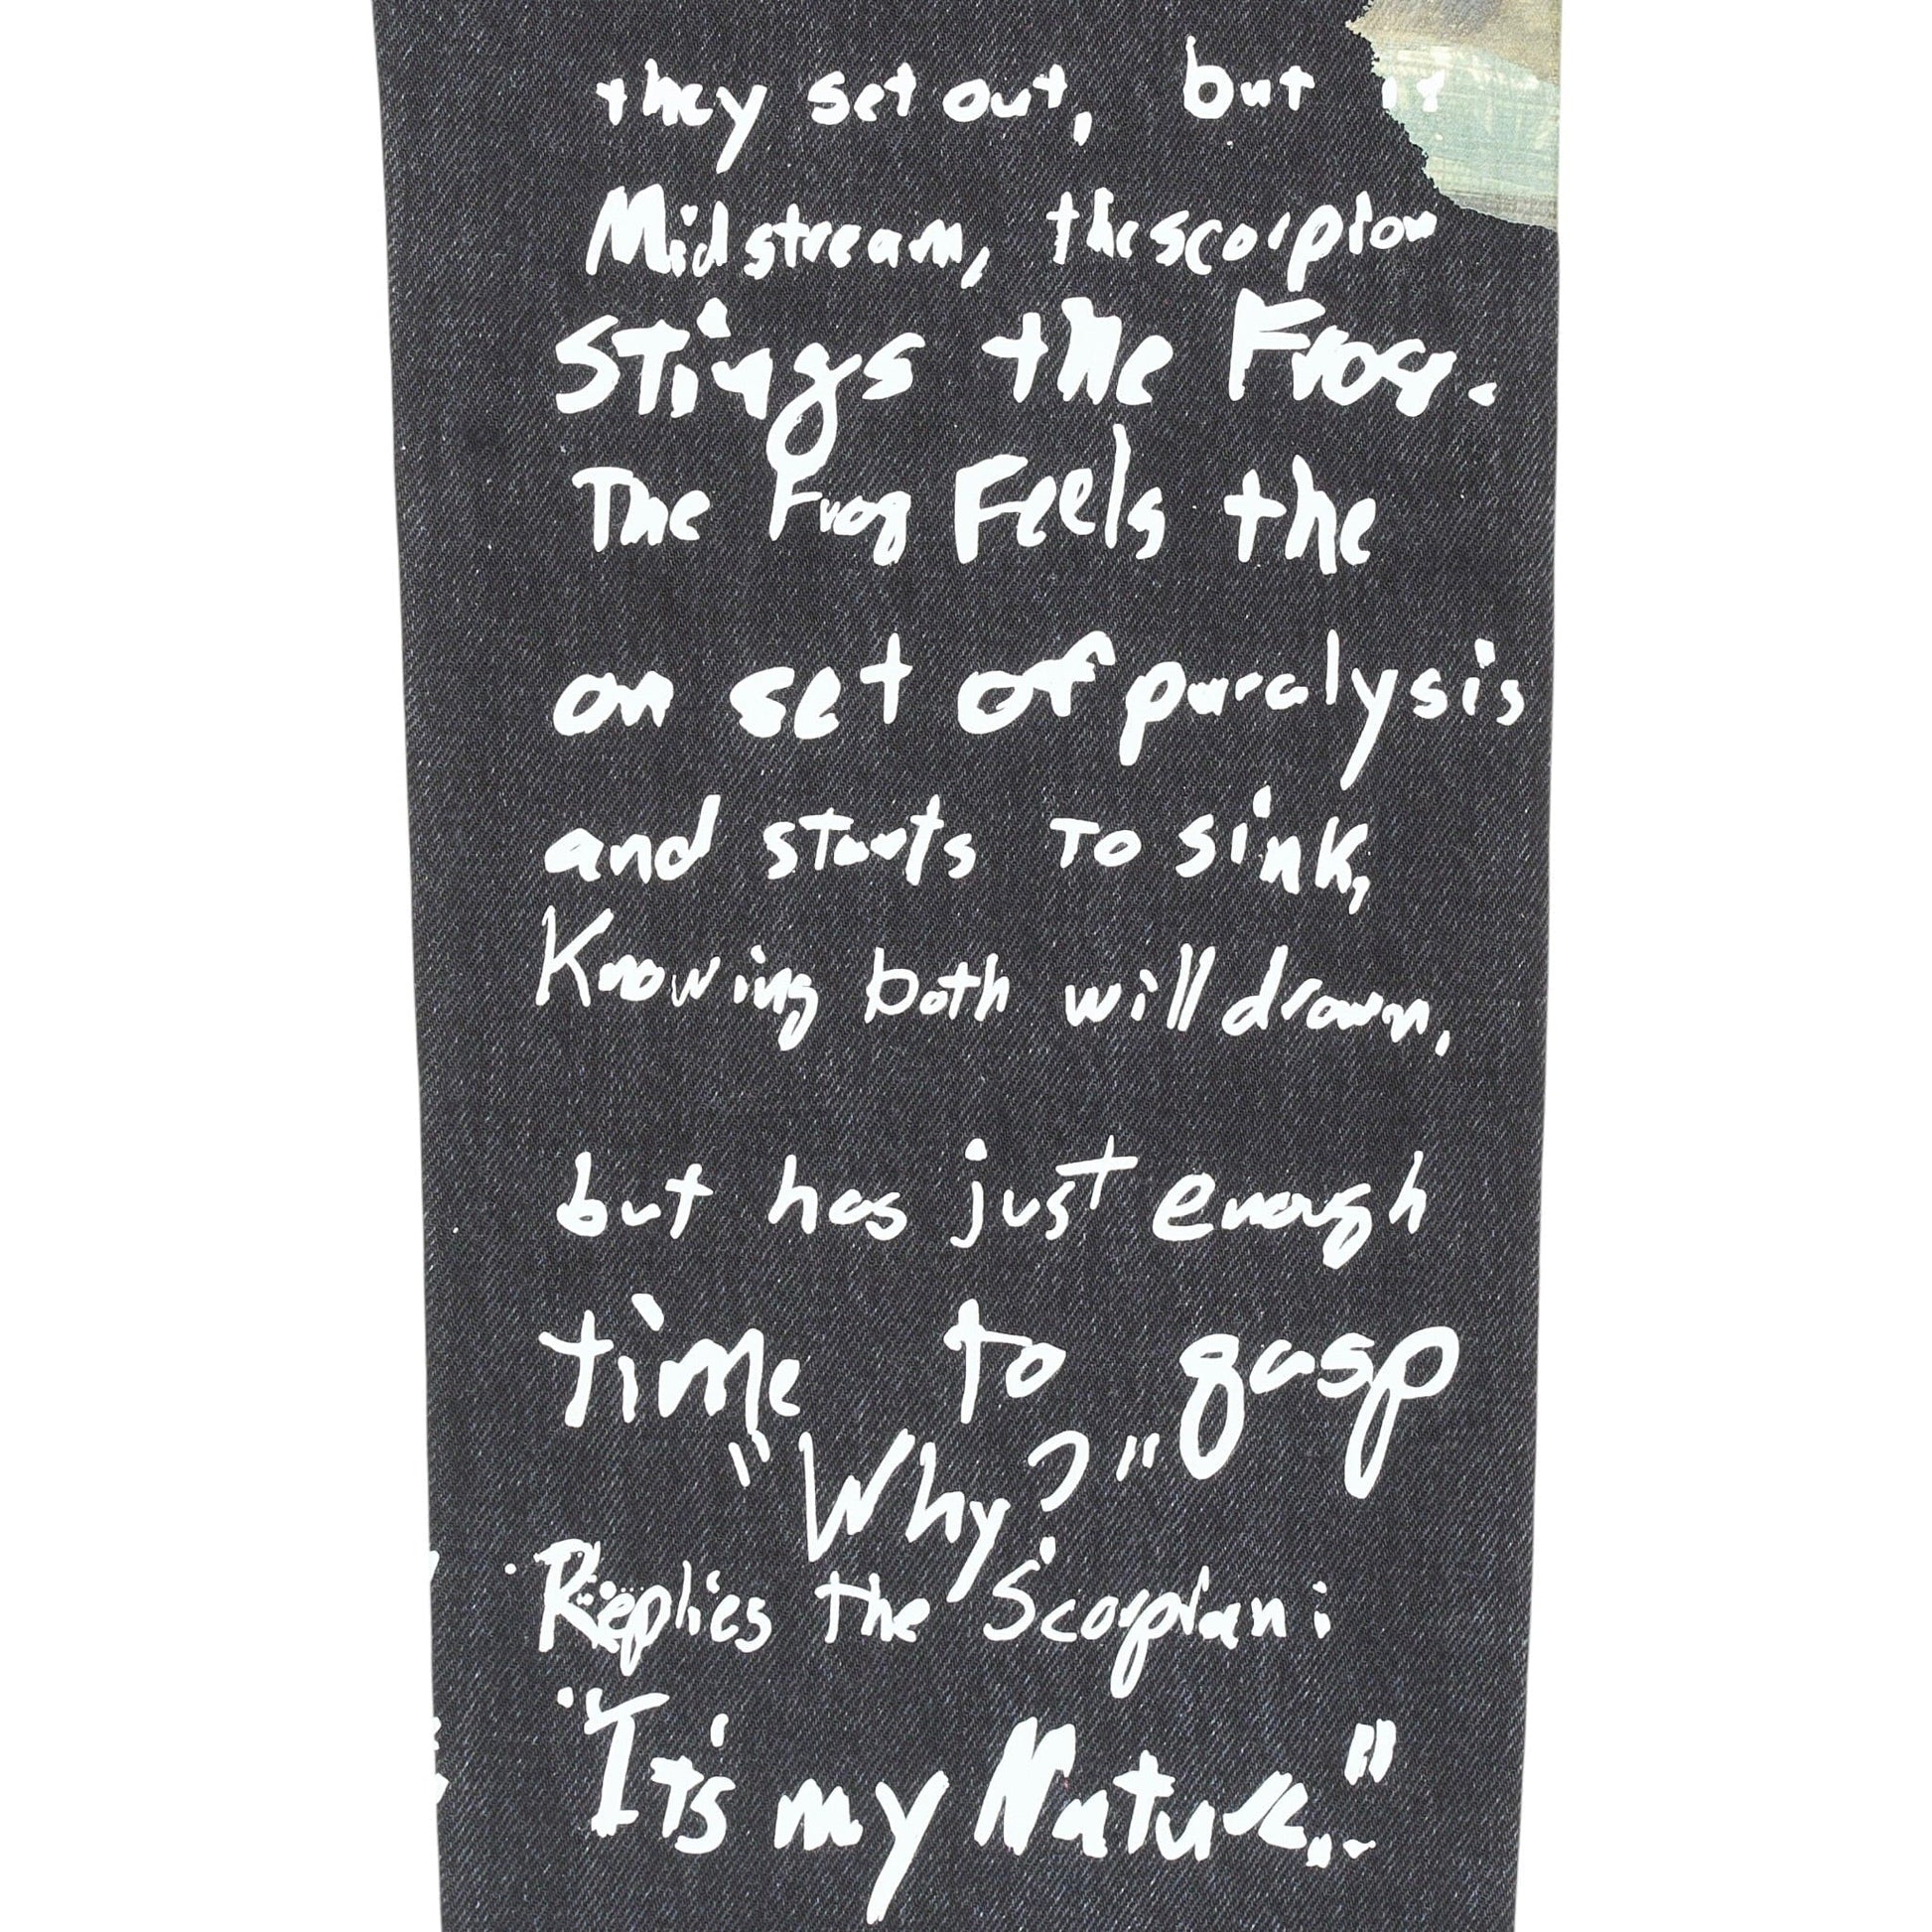 they set out, but
Midstream, the scorpion
Stings the Frog.
The Frog Feels the
on set of paralysis
and starts to sink,
Knowing both will drown,
but has just enough
time to gasp
"Why?"
Replies the Scorpian:
"It's my Nature..."